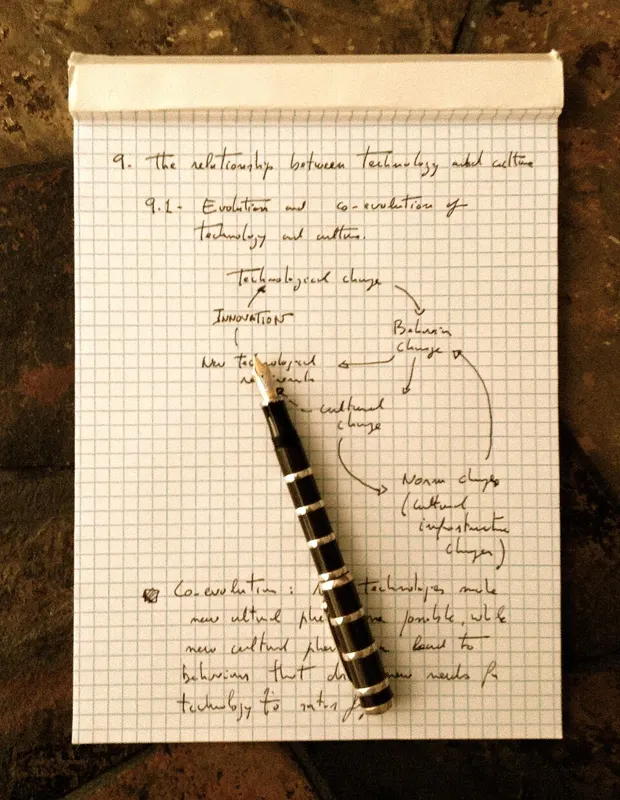 9. The relationship between technology and culture
9.1 - Evolution and co-evolution of
technology and culture.
Technological change
INNOVATION
Behavior
change
New technological
cultural
change
Norm changes
(cultural
infrastructure
changes)
Co-evolution: technologies make
new cultural possible, while
new cultural lead to
behaviors that new needs for
technology to